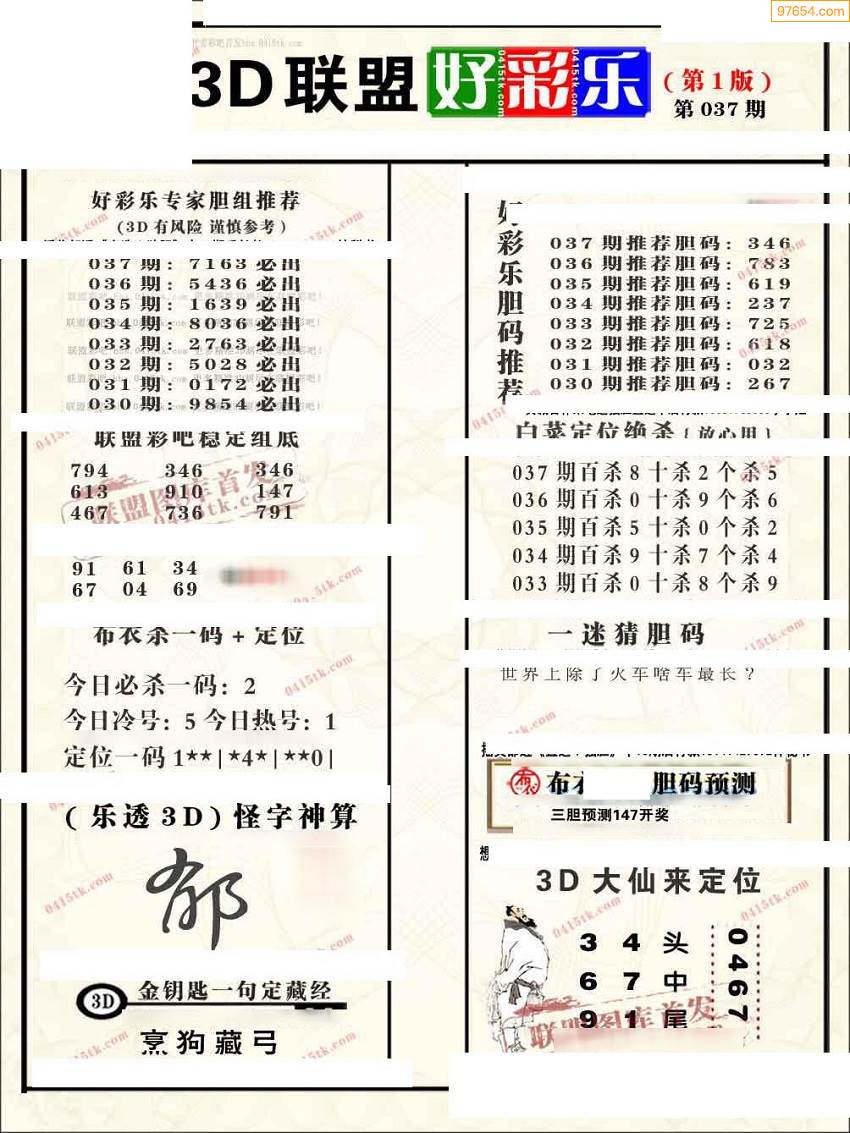 97654.com
3D联盟好彩乐
(第1版)
第037期
好彩乐专家胆组推荐
(3D有风险 谨慎参考)
037期: 7163必出
036期: 5436必出
035期: 1639必出
034期: 8036必出
033期: 2763必出
032期: 5028必出
031期: 0172必出
030期: 9854必出
联盟彩吧稳定组底
794 346 346
613 910 147
467 736 791
91 61 34
67 04 69
布衣杀一码+定位
今日必杀一码: 2
今日冷号: 5 今日热号: 1
定位一码 1**|*4*|**0|
(乐透3D)怪字神算
3D 金钥匙一句定藏经
烹狗藏弓
好彩乐胆码推荐
037期推荐胆码: 346
036期推荐胆码: 783
035期推荐胆码: 619
034期推荐胆码: 237
033期推荐胆码: 725
032期推荐胆码: 618
031期推荐胆码: 032
030期推荐胆码: 267
白菜定位绝杀{放心用}
037期百杀8十杀2个杀5
036期百杀0十杀9个杀6
035期百杀5十杀0个杀2
034期百杀9十杀7个杀4
033期百杀0十杀8个杀9
一迷猜胆码
世界上除了火车啥车最长?
布衣
胆码预测
三胆预测147开奖
3D大仙来定位
3 4 头
6 7 中
9 1 尾
0467
联盟图库首发
0415tk.com